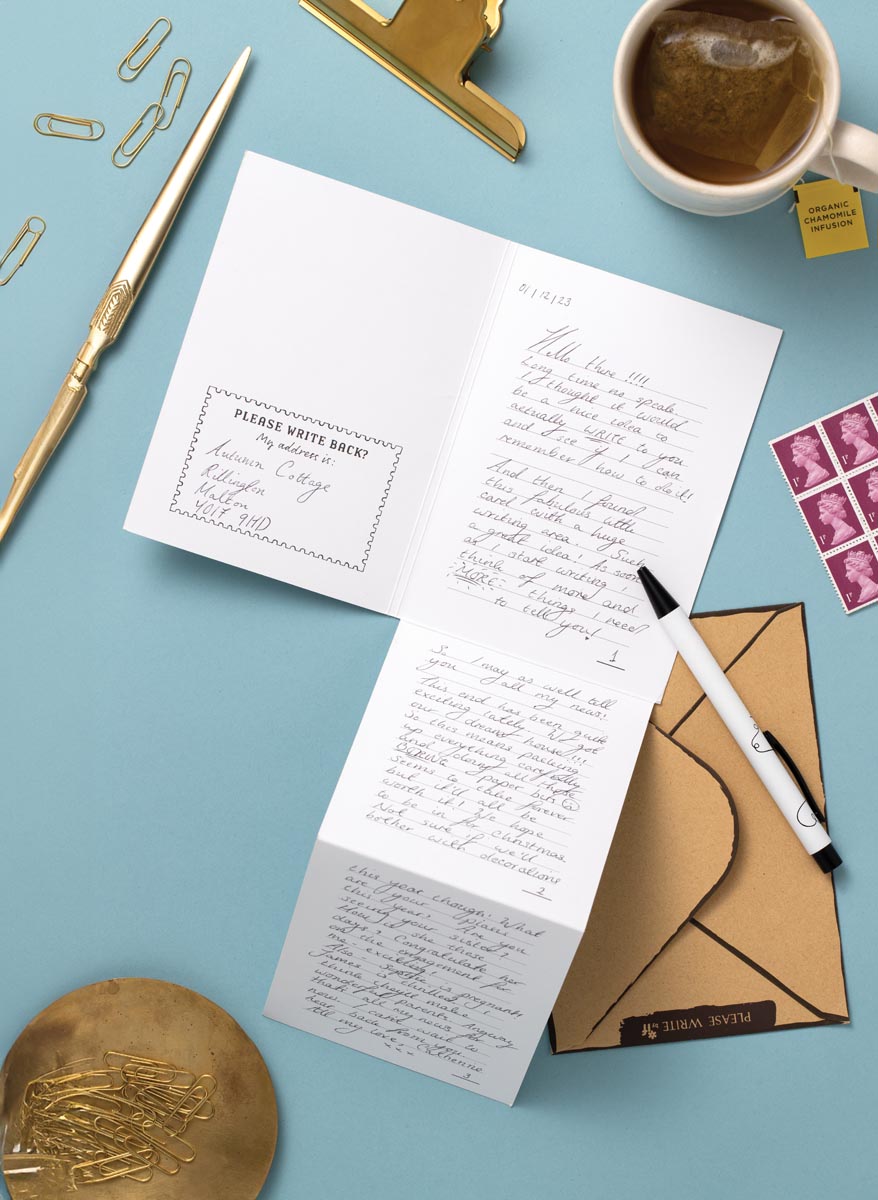 ORGANIC
CHAMOMILE
INFUSION
01/12/23
Hello there !!!!
Long time no speak.
I thought it would
be a nice idea to
actually WRITE to you
and see if I can
remember how to do it!
And then I found
this fabulous little
card with a huge
writing area. Such
a great idea! As soon
as I start writing I
think of more and
MORE things I need
to tell you!
1
PLEASE WRITE BACK?
My address is:
Autumn Cottage
Rillington
Malton
YO17 9HD
So I may as well tell
you all my news!
This end has been quite
exciting lately. We got
our dream house!!!!
So this means packing
up everything carefully
and doing all those
BORING paper bits
seems to take forever
but it'll all be
worth it! We hope
to be in for Christmas.
Not sure if we'll
bother with decorations
2
this year though! What
are your plans
this year? Are you
seeing your sister?
How is she these
days? Congratulate her
on the engagement for
me - exciting!
Also Sophie is pregnant!
James is thrilled! I
think they'll make
wonderful parents. Anyway
that's all my news for
now. I can't wait to
hear back from you
All my love, Catherine
x x x
3
1ˢᵗ
1ˢᵗ
1ˢᵗ
PLEASE WRITE by if